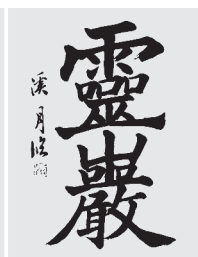 靈巖
溪月